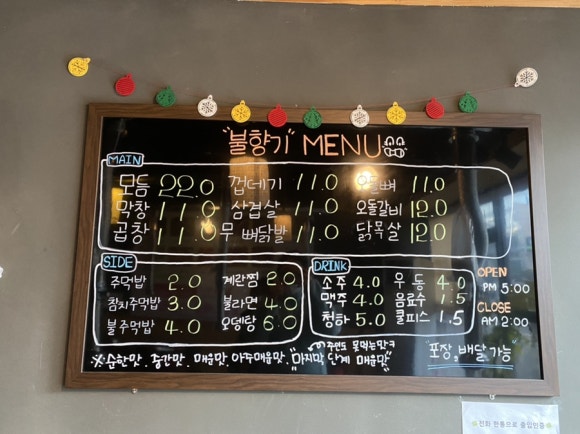 "불향기" MENU
MAIN
모듬 22.0 껍데기 11.0 오돌뼈 11.0
막창 11.0 삼겹살 11.0 오돌갈비 12.0
곱창 11.0 무뼈닭발 11.0 닭목살 12.0
SIDE
주먹밥 2.0 계란찜 2.0
참치주먹밥 3.0 불라면 4.0
불주먹밥 4.0 오뎅탕 6.0
DRINK
소주 4.0 우동 4.0
맥주 4.0 음료수 1.5
청하 5.0 쿨피스 1.5
OPEN
PM 5:00
CLOSE
AM 2:00
주인도 못먹는맛ㅋ
※순한맛. 중간맛. 매운맛. 아주매운맛. "마지막 단계 매운맛"
"포장, 배달 가능"
전화 한통으로 출입인증